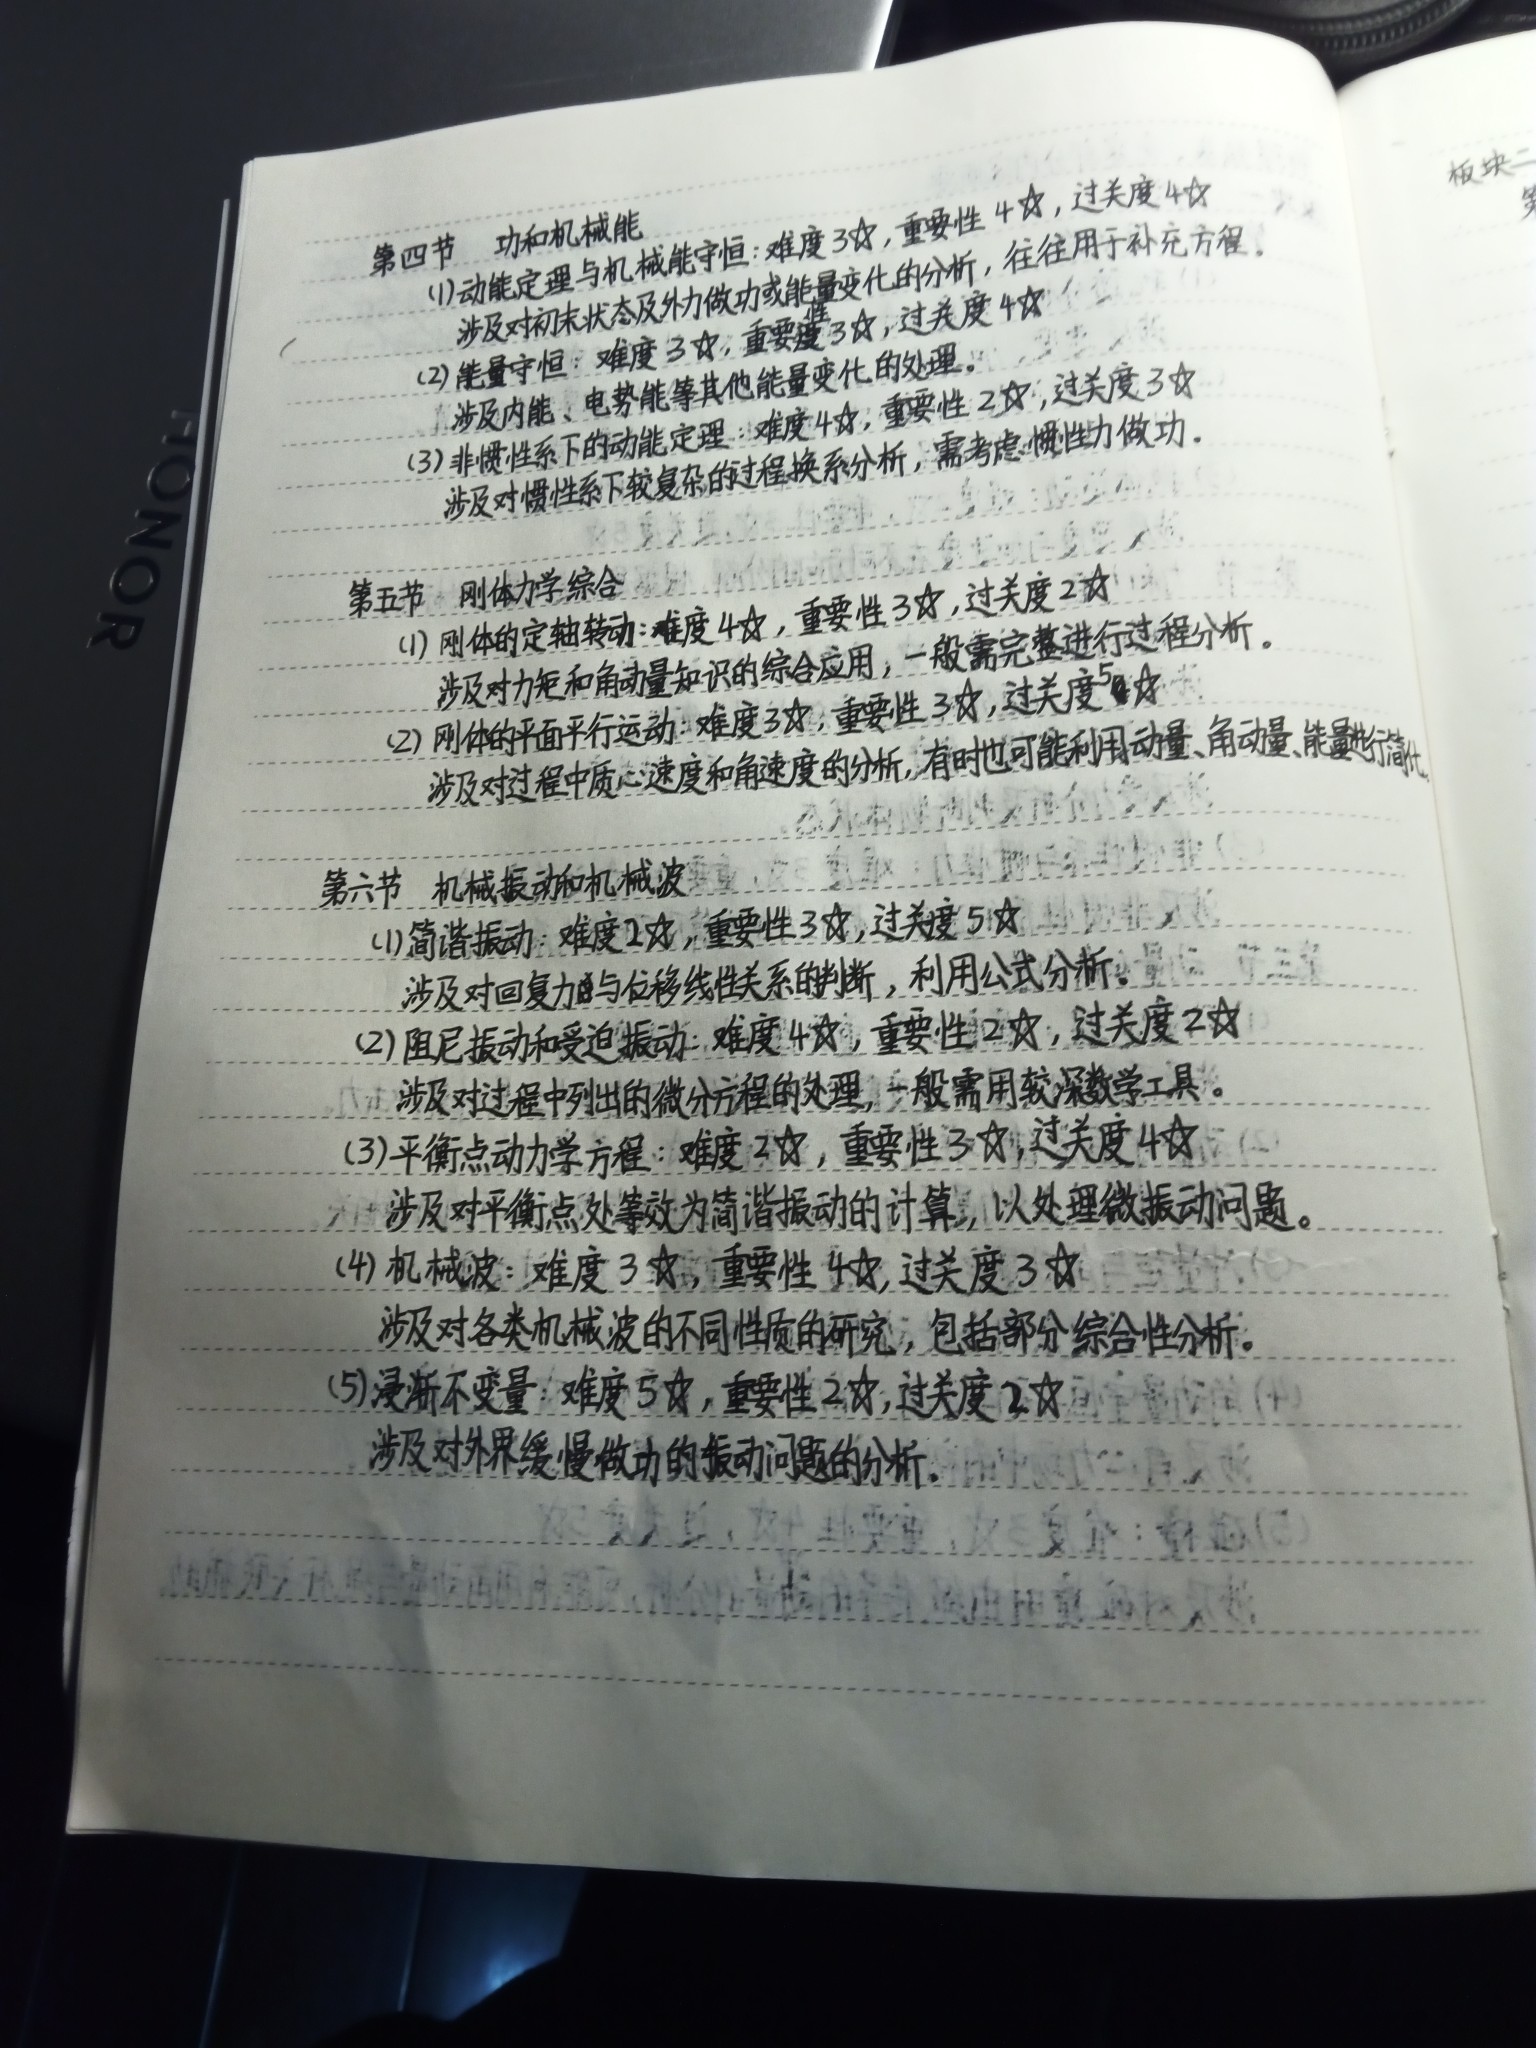 第四节 功和机械能
(1)动能定理与机械能守恒:难度3☆,重要性4☆,过关度4☆
涉及对初末状态及外力做功或能量变化的分析,往往用于补充方程。
(2)能量守恒:难度3☆,重要性3☆,过关度4☆
涉及内能、电势能等其他能量变化的处理。
(3)非惯性系下的动能定理:难度4☆,重要性2☆,过关度3☆
涉及对惯性系下较复杂的过程换系分析,需考虑惯性力做功.
第五节 刚体力学综合
(1)刚体的定轴转动:难度4☆,重要性3☆,过关度2☆
涉及对力矩和角动量知识的综合应用,一般需完整进行过程分析。
(2)刚体的平面平行运动:难度3☆,重要性3☆,过关度5☆
涉及对过程中质心速度和角速度的分析,有时也可能利用动量、角动量、能量进行简化.
第六节 机械振动和机械波
(1)简谐振动:难度2☆,重要性3☆,过关度5☆
涉及对回复力与位移线性关系的判断,利用公式分析.
(2)阻尼振动和受迫振动:难度4☆,重要性2☆,过关度2☆
涉及对过程中列出的微分方程的处理,一般需用较深数学工具。
(3)平衡点动力学方程:难度2☆,重要性3☆,过关度4☆
涉及对平衡点处等效为简谐振动的计算,以处理微振动问题。
(4)机械波:难度3☆,重要性4☆,过关度3☆
涉及对各类机械波的不同性质的研究,包括部分综合性分析。
(5)浸渐不变量:难度5☆,重要性2☆,过关度2☆
涉及对外界缓慢做功的振动问题的分析.
板块二
第
HONOR